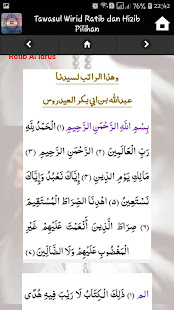 22:42
Tawasul Wirid Ratib dan Hizib
Pilihan
Ratib Al Idrus
وهذا الراتب لسيدنا
عبدالله بن ابي بكر العيدروس
بِسْمِ اللَّهِ الرَّحْمَنِ الرَّحِيمِ (١) الْحَمْدُ لِلَّهِ
رَبِّ الْعَالَمِينَ (٢) الرَّحْمَنِ الرَّحِيمِ (٣)
مَالِكِ يَوْمِ الدِّينِ (٤) إِيَّاكَ نَعْبُدُ وَإِيَّاكَ
نَسْتَعِينُ (٥) اهْدِنَا الصِّرَاطَ الْمُسْتَقِيمَ
(٦) صِرَاطَ الَّذِينَ أَنْعَمْتَ عَلَيْهِمْ غَيْرِ
الْمَغْضُوبِ عَلَيْهِمْ وَلَا الضَّالِّينَ (٧)
الم (١) ذَلِكَ الْكِتَابُ لَا رَيْبَ فِيهِ هُدًى